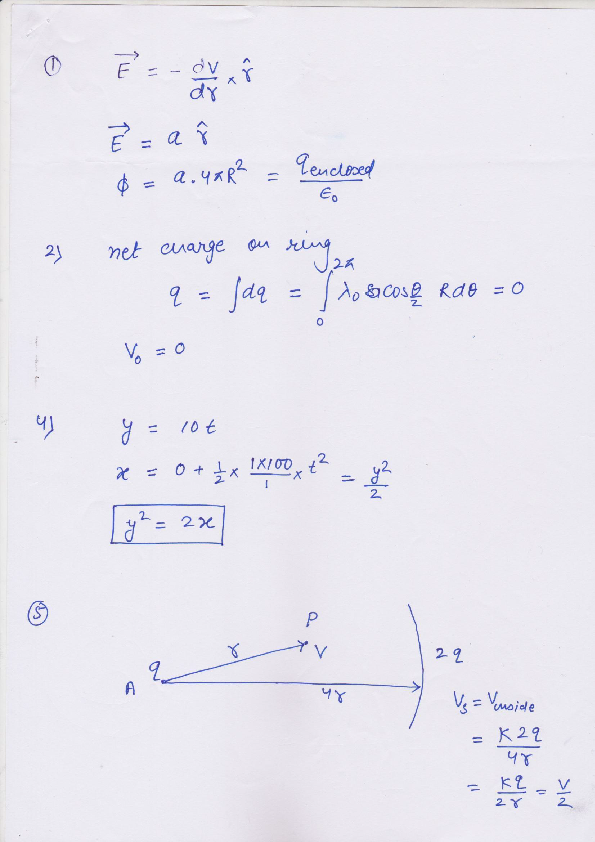 ① E⃗ = - dV/dr × r̂
E⃗ = a r̂
ϕ = a.4πR² = qenclosed/ε₀
2) net charge on ring
q = ∫dq = ∫₀^2π λ₀ cos θ/2 Rdθ = 0
V₀ = 0
4) y = 10t
x = 0 + 1/2 × 1×100/1 × t² = y²/2
y² = 2x
⑤ P
r V
q 2q
A 4r
Vs = Vinside
= K2q/4r
= Kq/2r = V/2